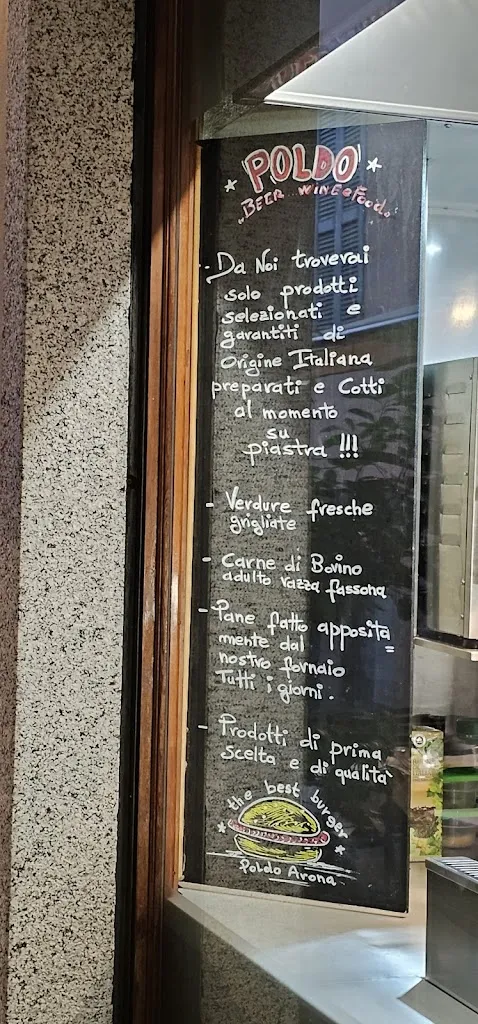 POLDO
"BEER WINE & Food"
- Da Noi troverai
solo prodotti
selezionati e
garantiti di
origine Italiana
preparati e Cotti
al momento
su
piastra !!!
- Verdure fresche
grigliate
- Carne di Bovino
adulto razza fassona
- Pane fatto apposita=
mente dal
nostro fornaio
Tutti i giorni.
- Prodotti di prima
scelta e di qualità
the best burger
Poldo Arona